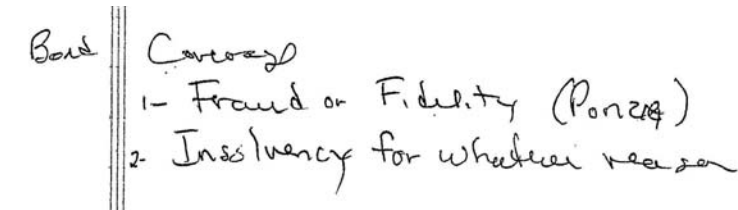 Bond Coverage
1- Fraud or Fidelity (Ponzie)
2- Insolvency for whatever reason